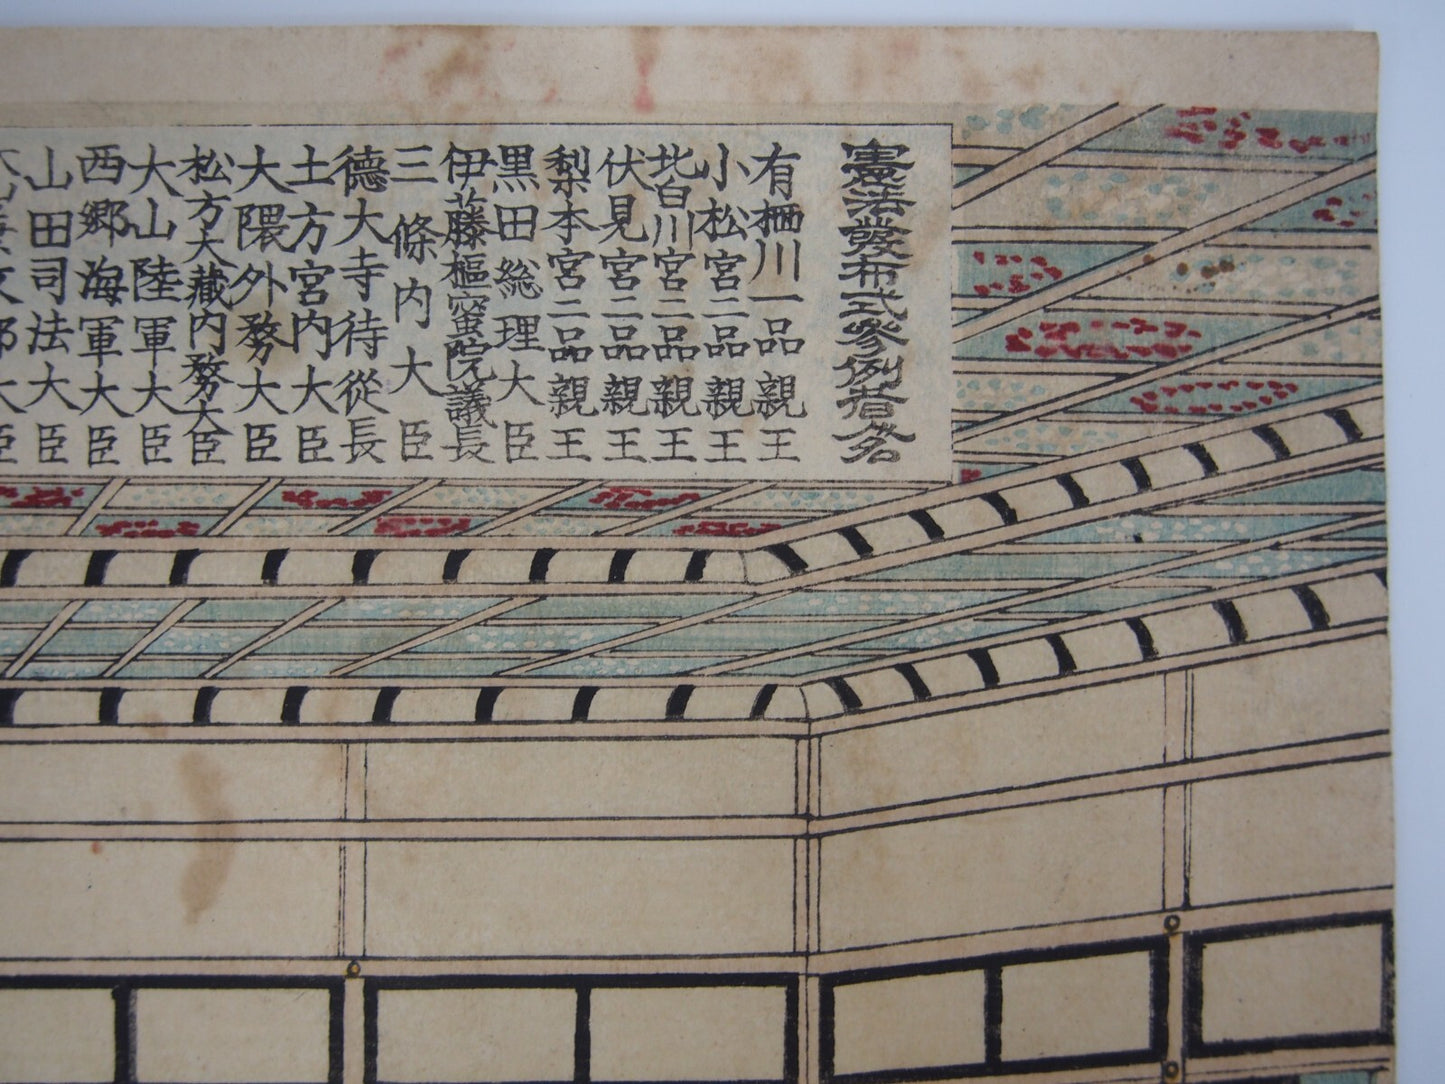 憲法發布式參例者人名
有栖川一品親王
小松宮二品親王
北白川宮二品親王
伏見宮二品親王
梨本宮二品親王
黒田総理大臣
伊藤樞密院議長
三條内大臣
德大寺待從長
土方宮内大臣
大隈外務大臣
松方大藏内務大臣
大山陸軍大臣
西郷海軍大臣
山田司法大臣